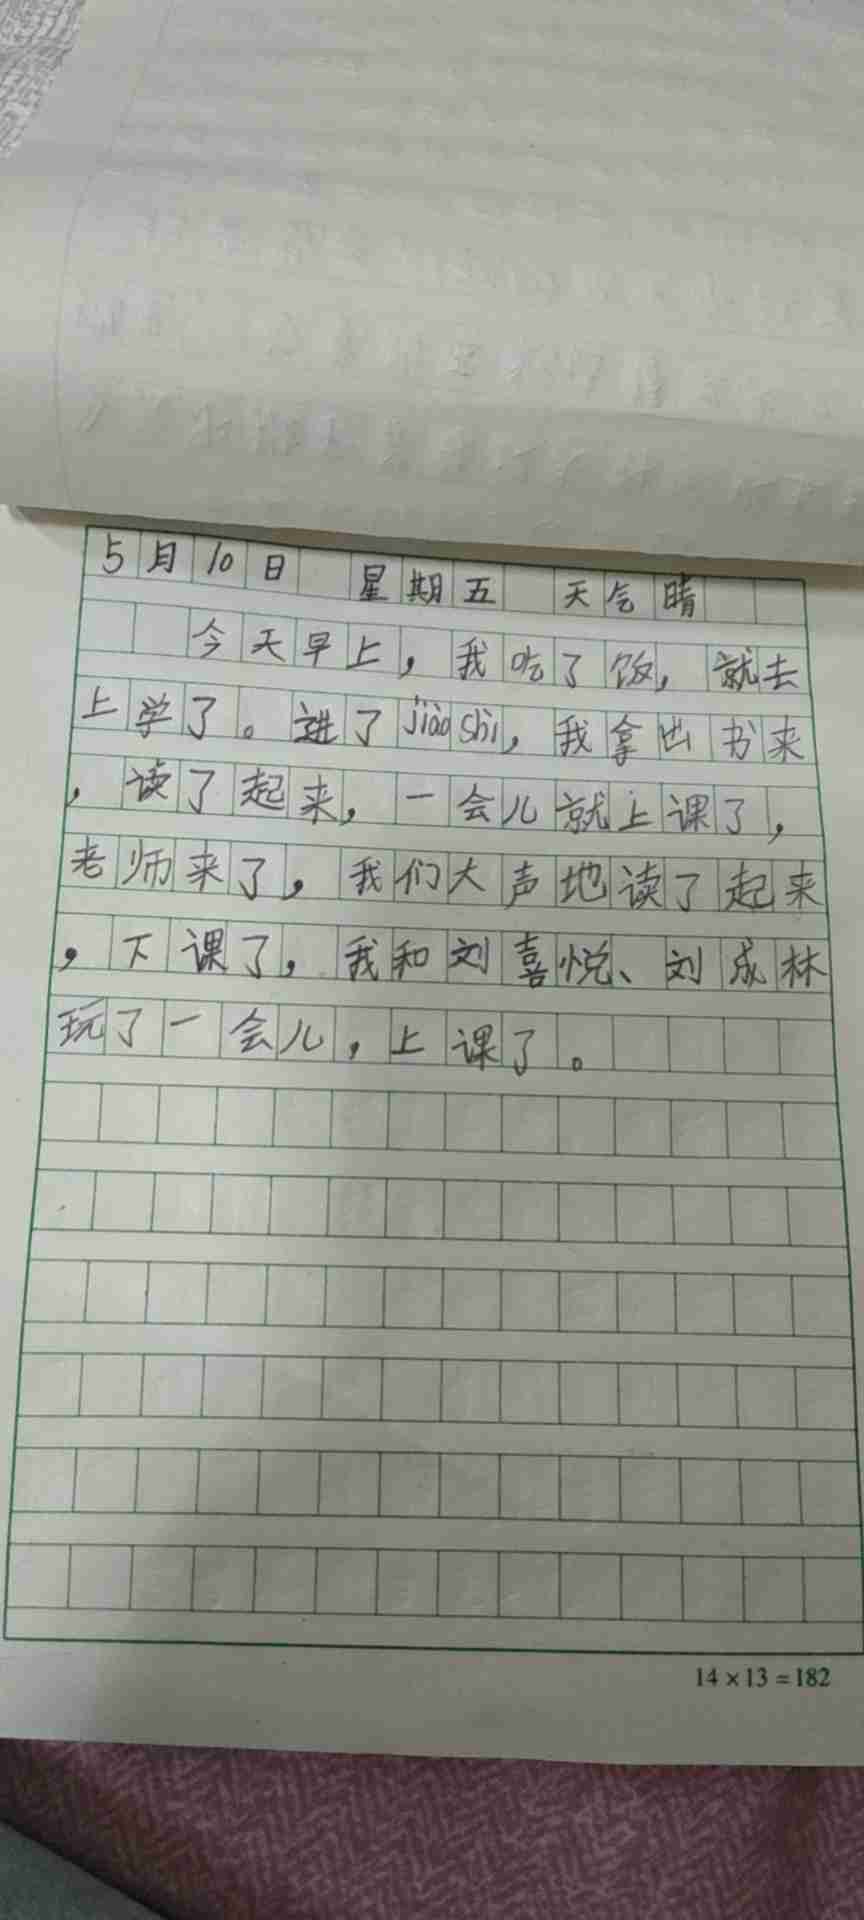 5月10日 星期五 天气晴
今天早上，我吃了饭，就去
上学了。进了jiào shì，我拿出书来
，读了起来，一会儿就上课了，
老师来了，我们大声地读了起来
，下课了，我和刘喜悦、刘成林
玩了一会儿，上课了。
14×13=182